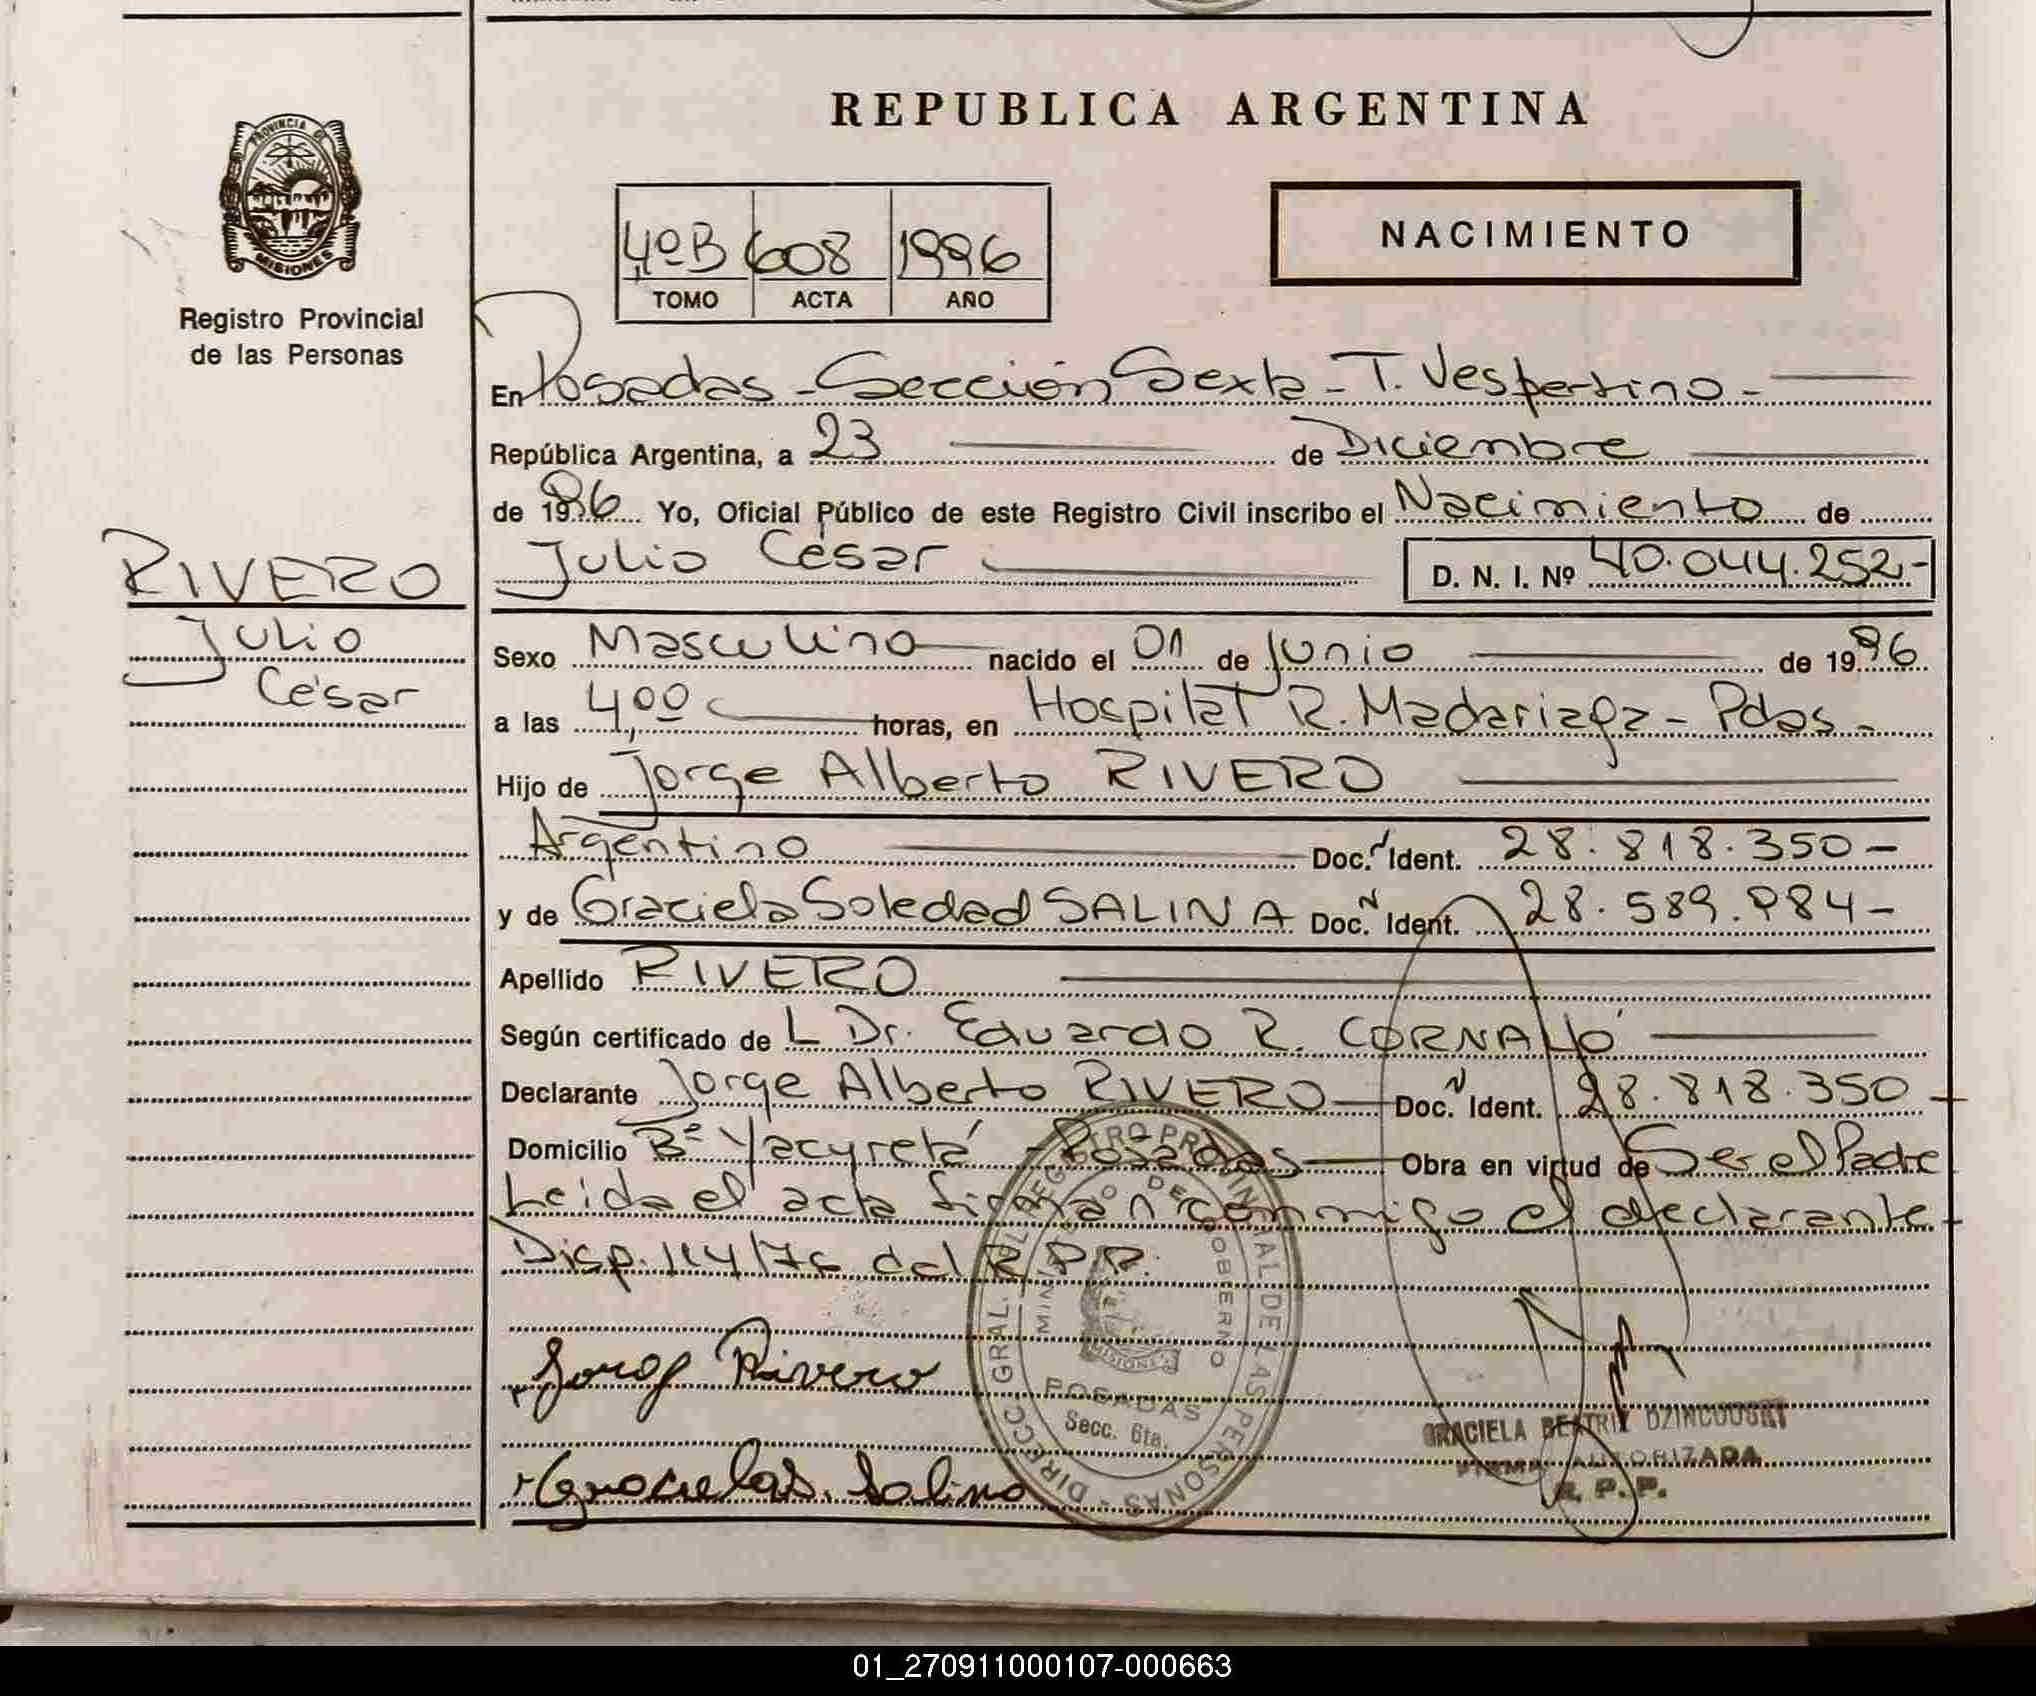 PROVINCIA DE
MISIONES
Registro Provincial
de las Personas
RIVERO
Julio
César
REPUBLICA ARGENTINA
NACIMIENTO
4ºB 608 1996
TOMO ACTA AÑO
En Posadas - Sección Sexta - T. Vespertino -
República Argentina, a 23 de Diciembre
de 1996 Yo, Oficial Público de este Registro Civil inscribo el Nacimiento de
Julio César D. N. I. Nº 40.044.252-
Sexo Masculino nacido el 01 de Junio de 1996
a las 4,00 horas, en Hospital R. Madariaga - Pdas -
Hijo de Jorge Alberto RIVERO
Argentino Doc. N Ident. 28.818.350-
y de Graciela Soledad SALINA Doc. N Ident. 28.589.984-
Apellido RIVERO
Según certificado de L Dr. Eduardo R. CORNALÓ
Declarante Jorge Alberto RIVERO Doc. N Ident. 28.818.350
Domicilio Bº Yacyretá - Posadas Obra en virtud de Ser el Padre
Leida el acta firman conmigo el declarante
Disp. 114/76 del R.P.P.
Jorge Rivero
Graciela S. Salina
DIRECC. GRAL. DEL REGISTRO PROVINCIAL DE LAS PERSONAS
MINISTERIO DE GOBIERNO
MISIONES
POSADAS
Secc. 6ta.
GRACIELA BEATRIZ
FIRMA AUTORIZADA
R. P. P.
01_270911000107-000663